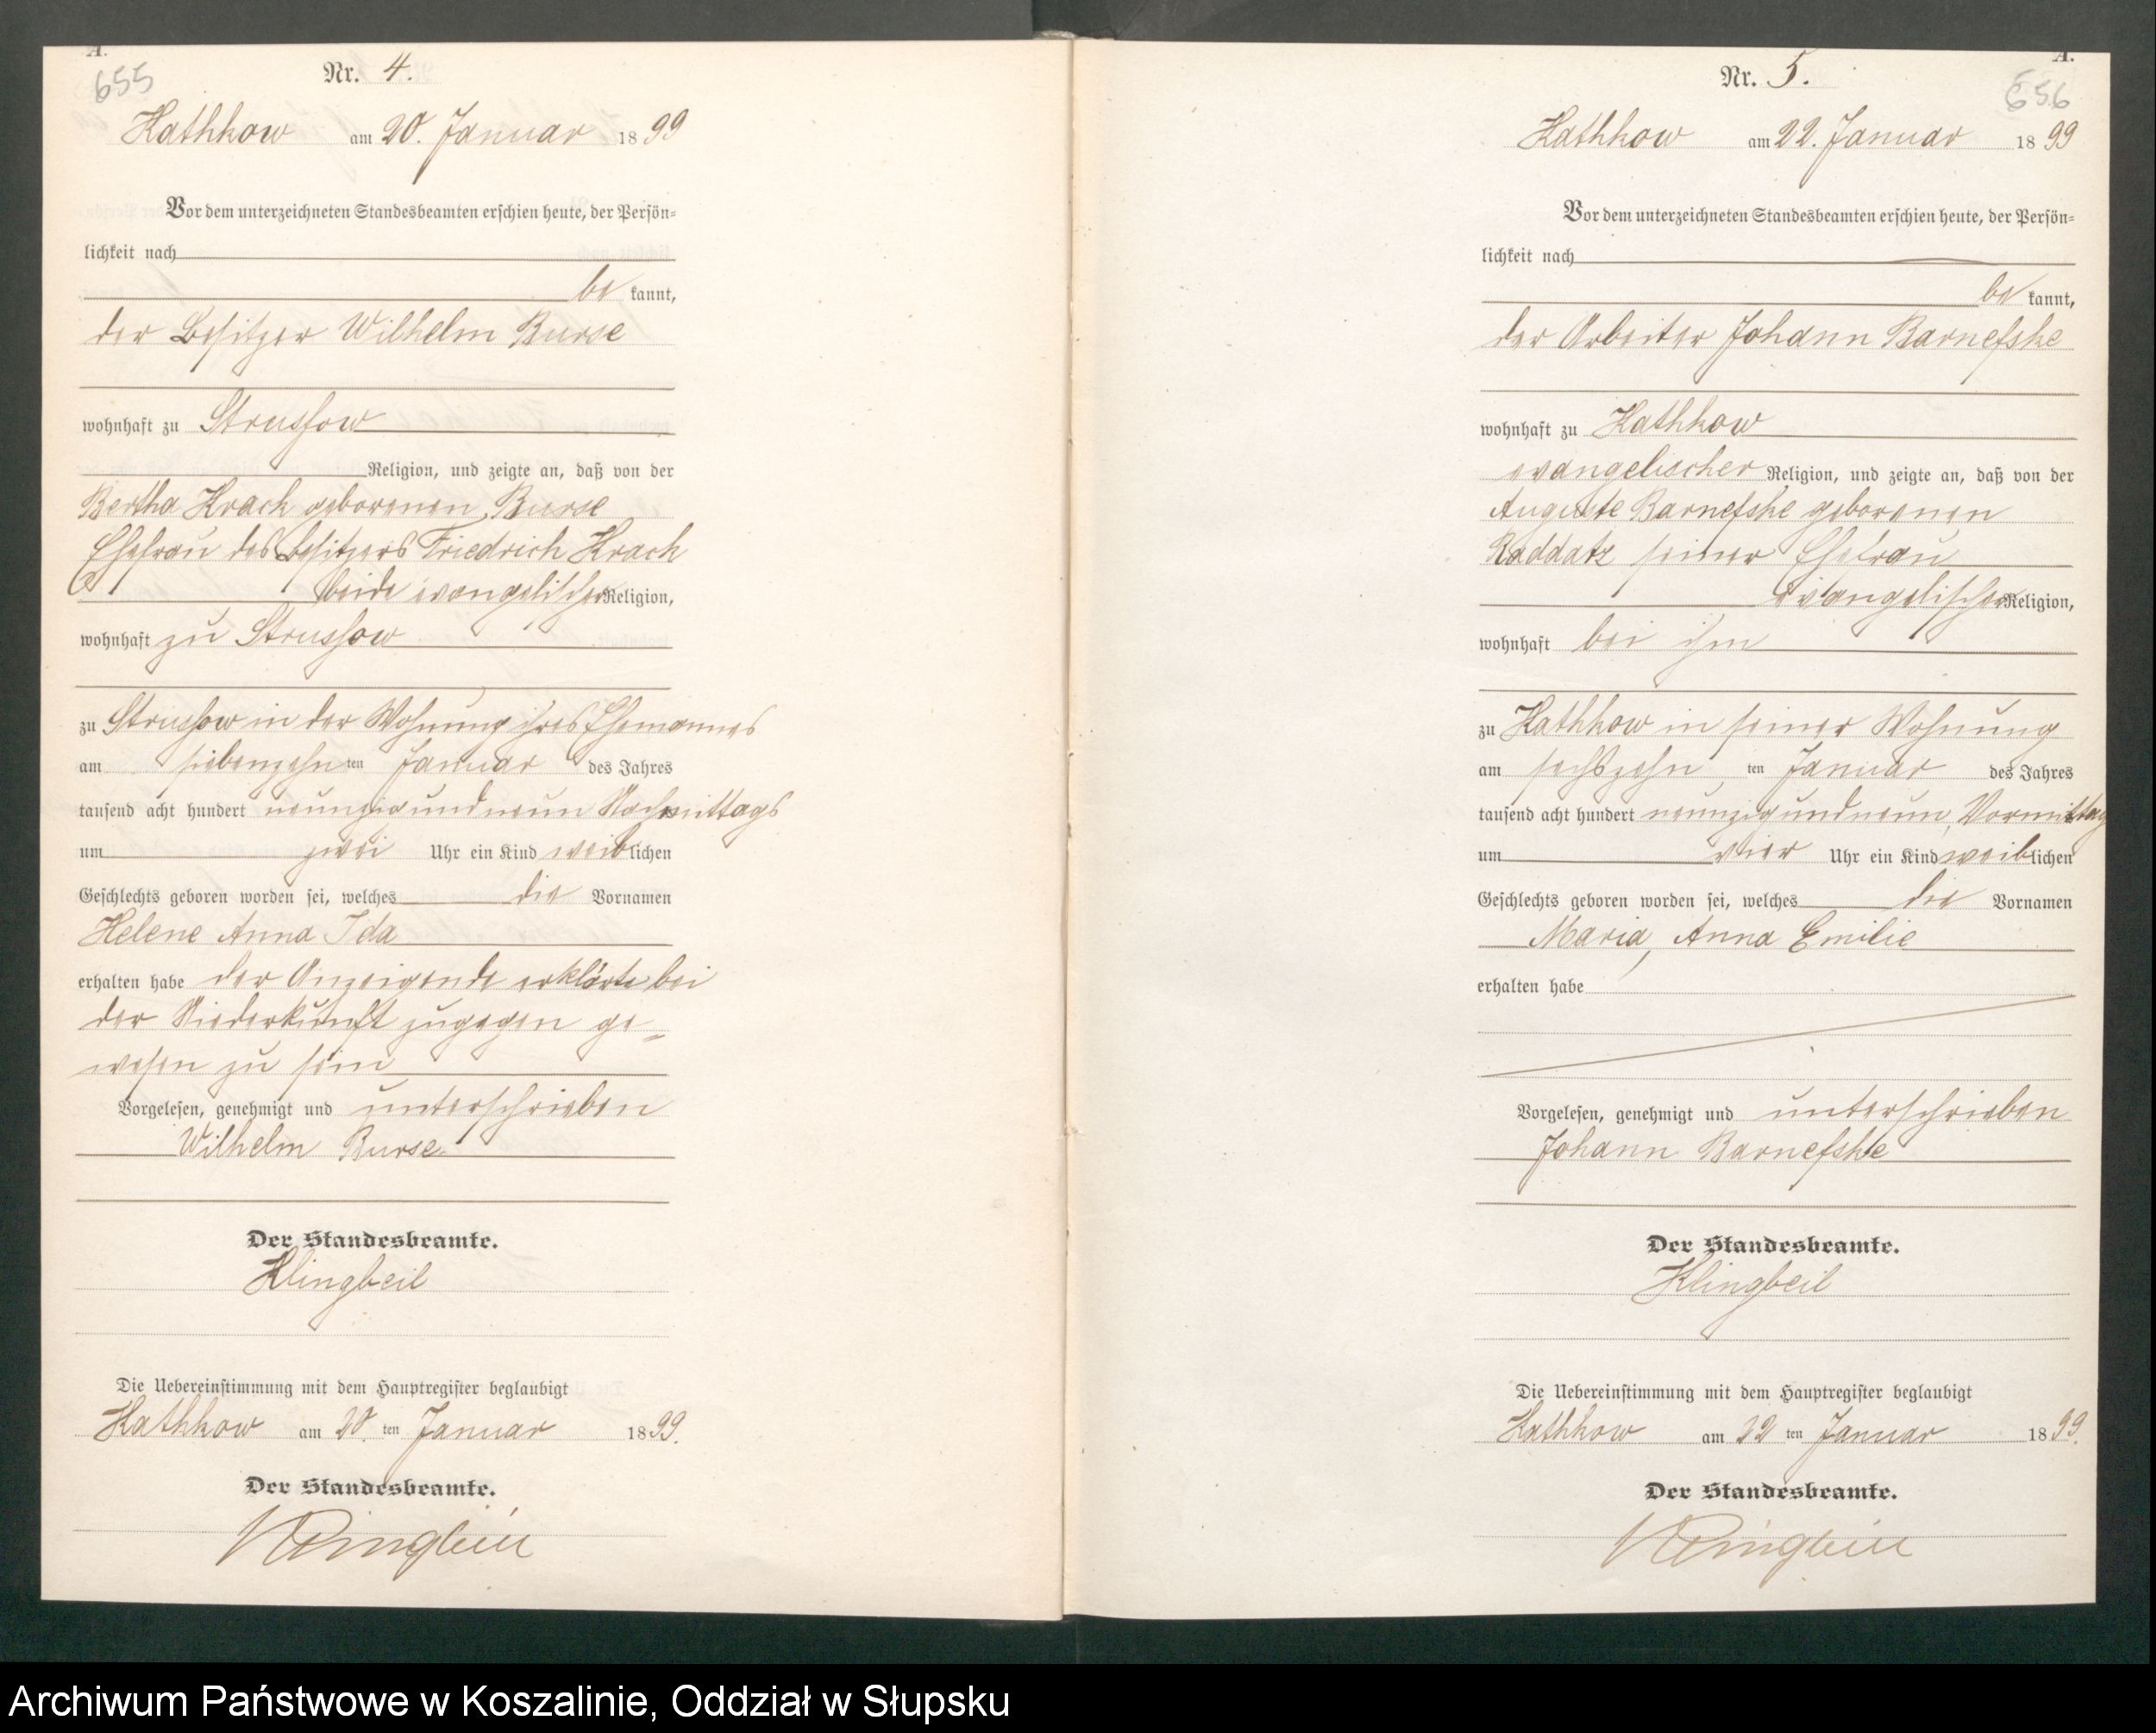 A.
655
Nr. 4.
Kathkow am 20. Januar 1899
Vor dem unterzeichneten Standesbeamten erschien heute, der Persön-
lichkeit nach
be kannt,
der Besitzer Wilhelm Burse
wohnhaft zu Strussow
Religion, und zeigte an, daß von der
Bertha Krach geborenen Burse
Ehefrau des Besitzers Friedrich Krach
beide evangelischer Religion,
wohnhaft zu Strussow
zu Strussow in der Wohnung ihres Ehemannes
am siebenzehn ten Januar des Jahres
tausend acht hundert neunzig und neun Nachmittags
um zwei Uhr ein Kind weiblichen
Geschlechts geboren worden sei, welches die Vornamen
Helene Anna Ida
erhalten habe der Anzeigende erklärte bei
der Niederkunft zugegen ge=
wesen zu sein
Vorgelesen, genehmigt und unterschrieben
Wilhelm Burse
Der Standesbeamte.
Klingbeil
Die Uebereinstimmung mit dem Hauptregister beglaubigt
Kathkow am 20. ten Januar 1899.
Der Standesbeamte.
Klingbeil
A.
656
Nr. 5.
Kathkow am 22. Januar 1899
Vor dem unterzeichneten Standesbeamten erschien heute, der Persön-
lichkeit nach
be kannt,
der Arbeiter Johann Barnefske
wohnhaft zu Kathkow
evangelischer Religion, und zeigte an, daß von der
Auguste Barnefske geborenen
Raddatz seiner Ehefrau
evangelischer Religion,
wohnhaft bei ihm
zu Kathkow in seiner Wohnung
am sechszehn ten Januar des Jahres
tausend acht hundert neunzig und neun, Vormittag
um vier Uhr ein Kind weiblichen
Geschlechts geboren worden sei, welches die Vornamen
Maria, Anna Emilie
erhalten habe
Vorgelesen, genehmigt und unterschrieben
Johann Barnefske
Der Standesbeamte.
Klingbeil
Die Uebereinstimmung mit dem Hauptregister beglaubigt
Kathkow am 22 ten Januar 1899.
Der Standesbeamte.
Klingbeil
Archiwum Państwowe w Koszalinie, Oddział w Słupsku